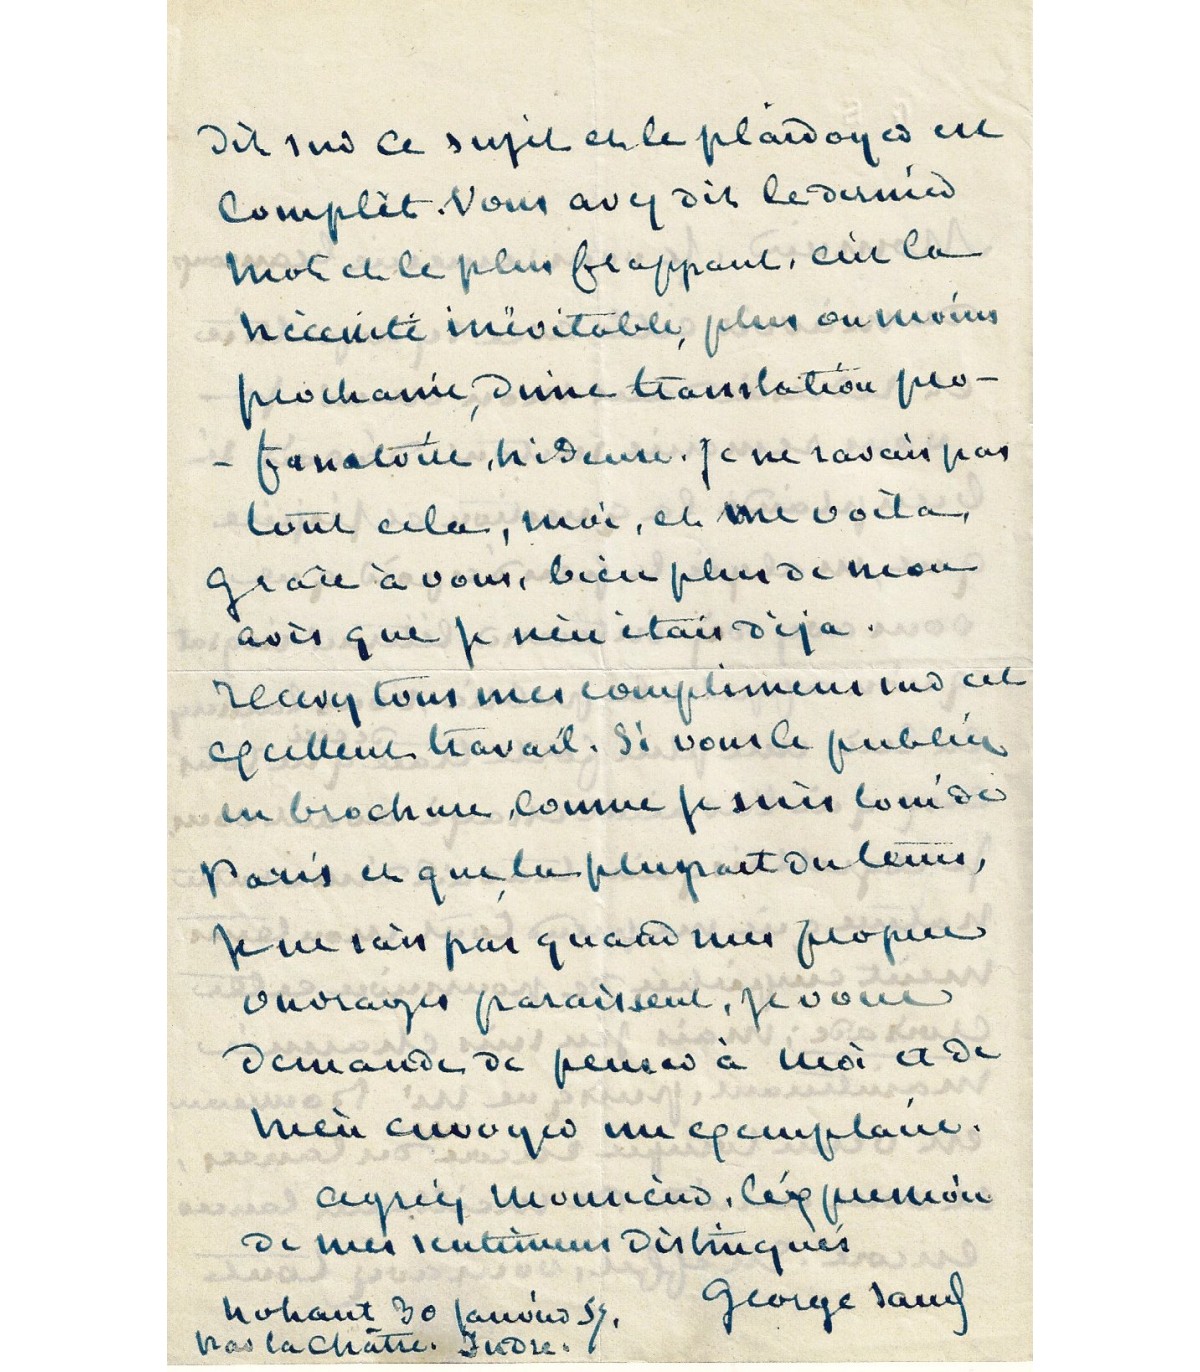 dit sur ce sujet et le plaidoyer est
complèt. Vous avez dit le dernier
mot et le plus frappant, c'est la
nécéssité inévitable, plus ou moins
prochaine, d'une translation pro-
- fanatoire, hideuse. Je ne savais pas
tout cela, moi, et me voila,
grâce à vous, bien plus de mon
avis que je n'en étais déja.
Recevez tous mes complimens sur cet
excellent travail. Si vous le publiez
en brochure, comme je suis loin de
Paris et que, la plupart du tems,
je ne sais pas quand mes propres
ouvrages paraissent, je vous
demande de penser à moi et de
m'en envoyer un exemplaire.
agréez Monsieur, l'éxpression
de mes sentimens distingués
George Sand
Nohant 30 janvier 57.
par la Châtre. Indre.